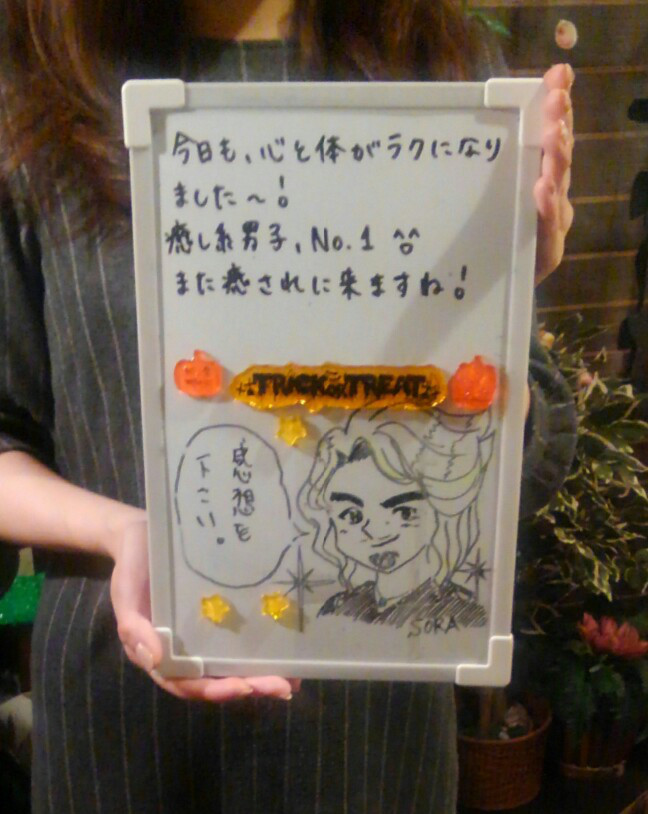 今日も、心と体がラクになり
ました～!
癒し系男子、No.1 ^^
また癒されに来ますね!
TRICK OR TREAT
感想を
下さい。
SORA